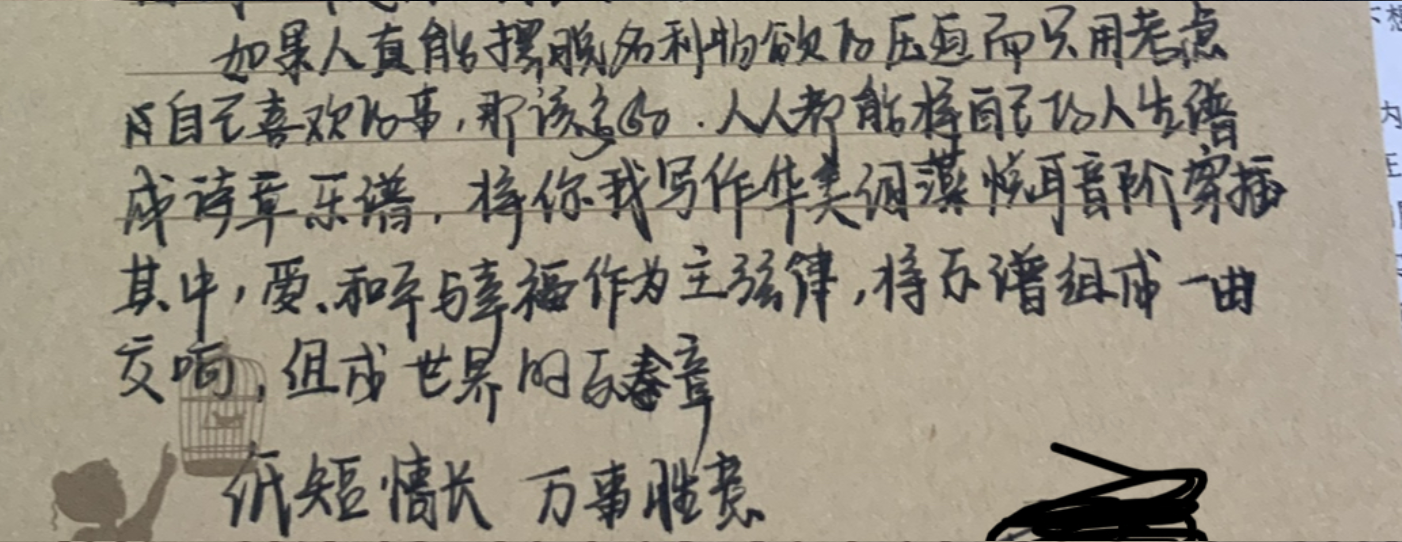 如果人真能摆脱名利物欲的压迫而只用考虑
自己喜欢的事,那该多好.人人都能将自己的人生谱
成诗章乐谱,将你我写作华美词藻悦耳音阶穿插
其中,爱、和平与幸福作为主弦律,将乐谱组成一曲
交响,组成世界的乐章
纸短情长 万事胜意